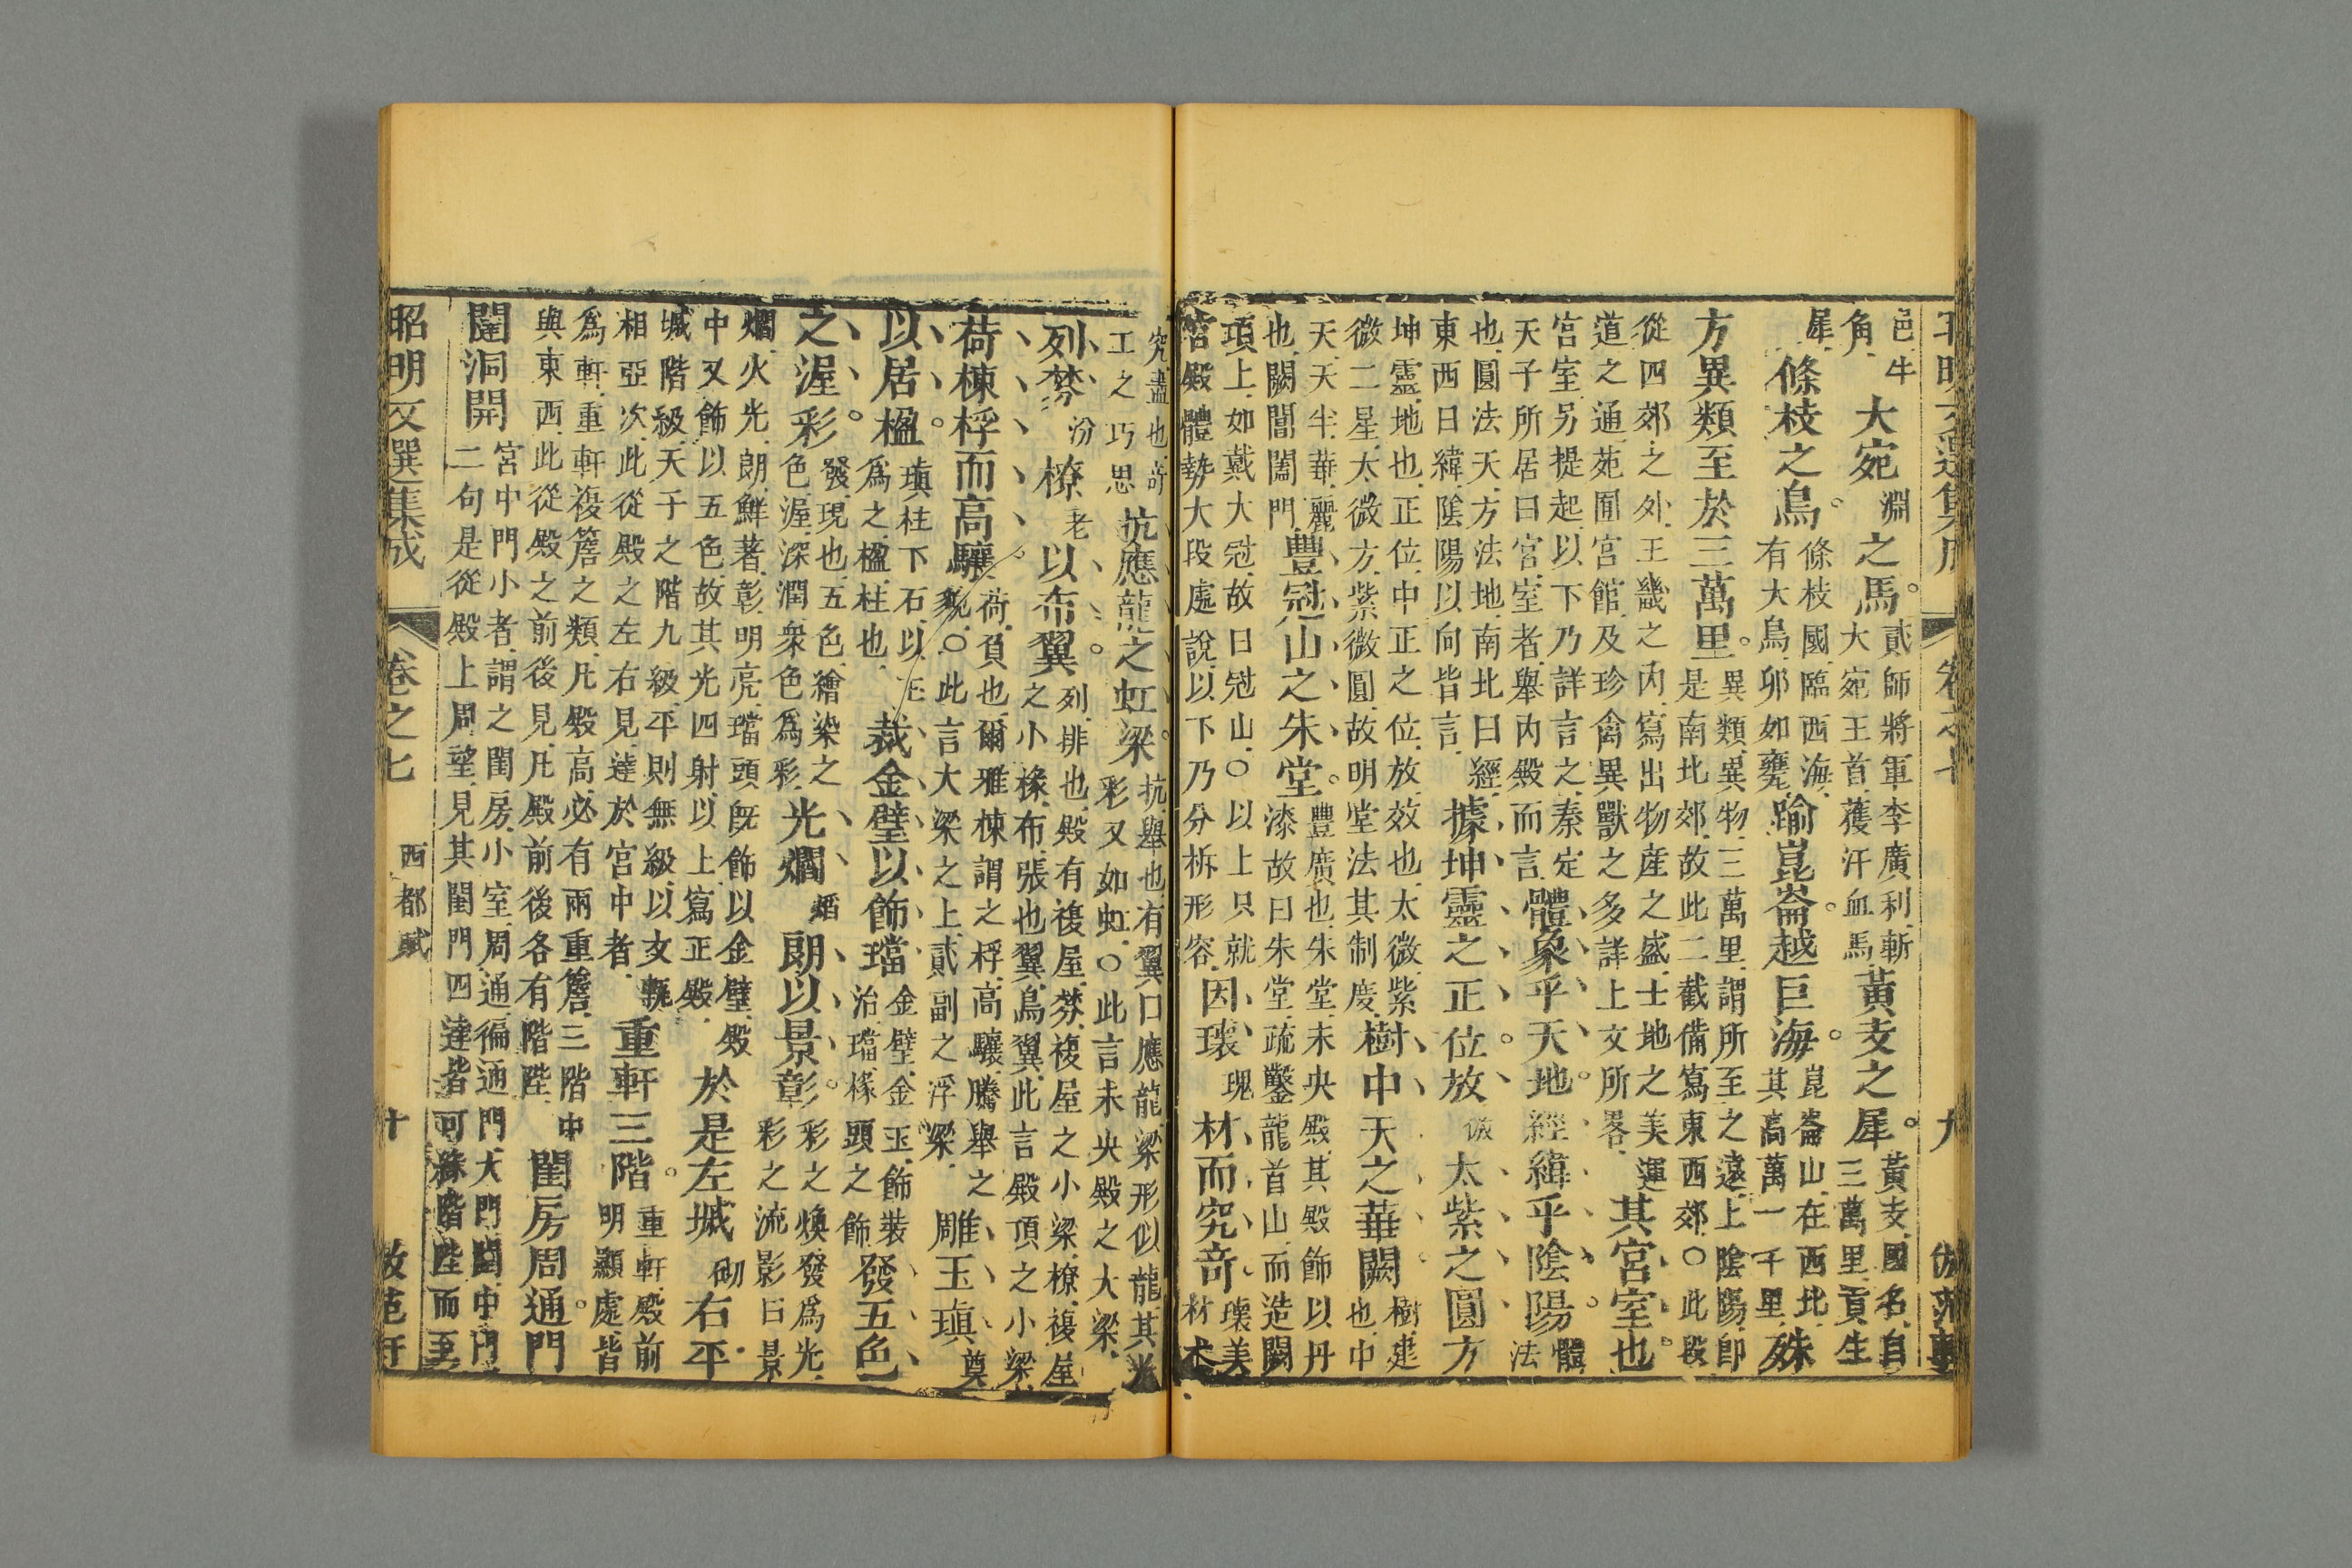 昭明文選集成 卷之七 九 倣范軒
邑牛
角 大宛淵之馬。貳師將軍李廣利斬
大宛王首獲汗血馬 黃支之犀。黃支國名自
三萬里貢生
犀 條枝之鳥。條枝國臨西海
有大鳥卵如甕 踰崑崙。越巨海。崑崙山在西北
其高萬一千里 殊
方異類至於三萬里。異類異物三萬里謂所至之遠上陰陽卽
是南北郊故此二截備寫東西郊○此段
從四郊之外王畿之內寫出物產之盛士地之美運
道之通苑囿宮館及珍禽異獸之多詳上文所畧 其宮室也。
宮室另提起以下乃詳言之秦定
天子所居曰宮室者舉內殿而言 體象乎天地。經緯乎陰陽。體
法
也圓法天方法地南北曰經
東西曰緯陰陽以向皆言 據坤靈之正位。放倣太紫之圓方
坤靈地也正位中正之位放效也太微紫
微二星太微方紫微圓故明堂法其制度 樹中天之華闕。樹建
也中
天天半華麗
也闕閶闔門 豐冠山之朱堂。豐廣也朱堂未央殿其殿飾以丹
漆故曰朱堂疏鑿龍首山而造闕
項上如戴大冠故曰冠山○以上只就
宮殿體勢大段處說以下乃分析形容 因瓌瑰材而究奇。瓌美
材木
究盡也奇
工之巧思 抗應龍之虹梁。抗舉也有翼曰應龍梁形似龍其光
彩又如虹○此言未央殿之大梁
列棼汾橑老以布翼。列排也殿有複屋棼複屋之小梁橑複屋
之小椽布張也翼鳥翼此言殿頂之小梁
荷棟桴而高驤。荷負也爾雅棟謂之桴高驤騰舉之
貌○此言大梁之上貳副之浮梁 雕玉瑱奠
以居楹。瑱柱下石以玉
爲之楹柱也 裁金璧以飾璫金璧金玉飾裝
治璫椽頭之飾 發五色
之渥彩。發現也五色繪染之
色渥深潤衆色爲彩 光爓焰朗以景彰。彩之煥發爲光
彩之流影曰景
爓火光朗鮮著彰明亮璫頭旣飾以金璧殿
中又飾以五色故其光四射以上寫正殿 於是左墄砌右平
墄階級天子之階九級平則無級以文甎
相亞次此從殿之左右見達於宮中者 重軒三階。重軒殿前
明顯處皆
爲軒重軒複簷之類凡殿高必有兩重簷三階中
與東西此從殿之前後見凡殿前後各有階陛 閨房周通。門
闥洞開宮中門小者謂之閨房小室周通徧通門大門闥中門
二句是從殿上周望見其閨門四達皆可緣階陛而至
昭明文選集成 卷之七 西都賦 十 倣范軒